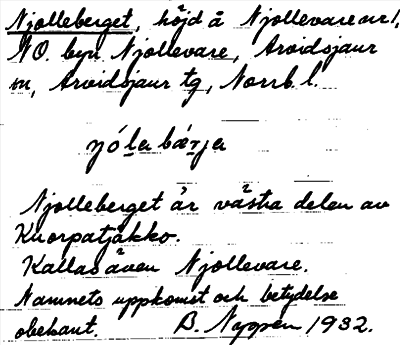 Njolleberget, höjd å Njollevare nr 1,
NO. byn Njollevare, Arvidsjaur
sn, Arvidsjaur tg, Norrb. l.
Njolleberget är västra delen av
Knorpatjåkko.
Kallas även Njollevare.
Namnets uppkomst och betydelse
obekant. B. Nyppen 1932.